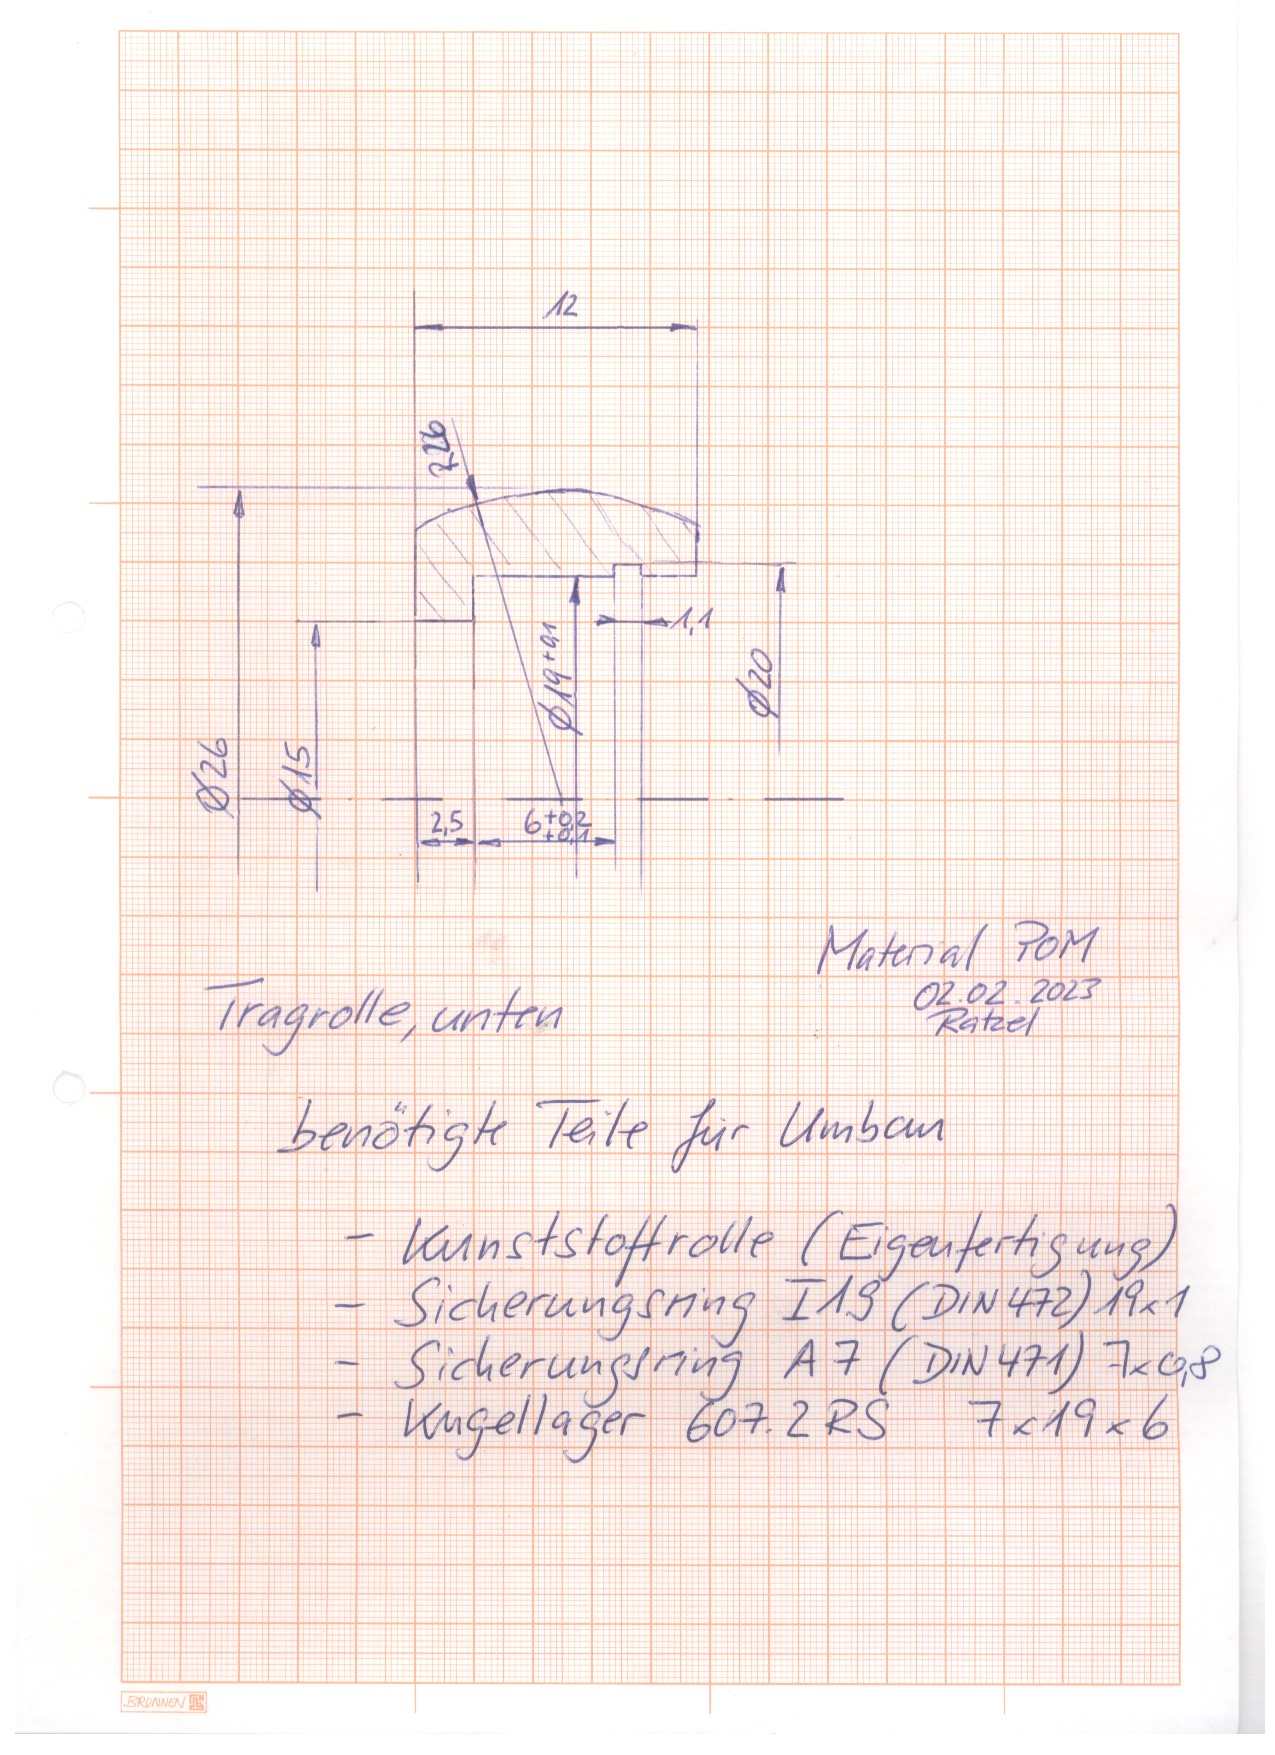 12
Ø26
Ø15
Ø19+0,1
1,1
Ø20
2,5
6+0,2
+0,1
Material POM
02.02.2023
Ratzel
Tragrolle, unten
benötigte Teile für Umbau
- Kunststoffrolle (Eigenfertigung)
- Sicherungsring I19 (DIN 472) 19x1
- Sicherungsring A7 (DIN 471) 7x0,8
- Kugellager 607.2RS 7x19x6
BRUNNEN